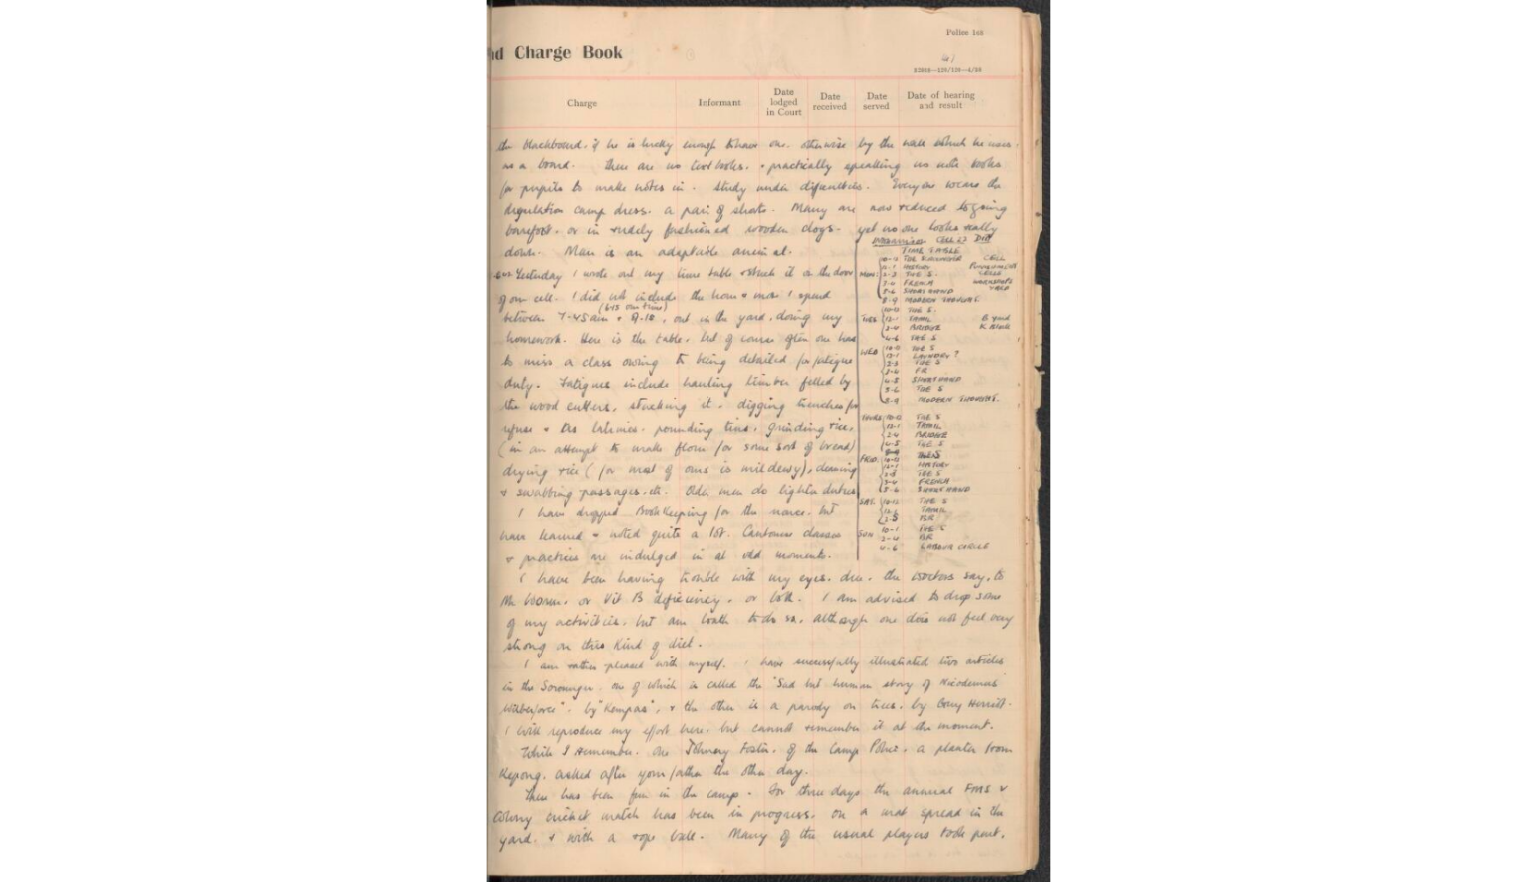 Police 168
nd Charge Book
Charge
Informant
Date lodged in Court
Date received
Date served
Date of hearing and result
the blackboard, if he is lucky enough to have one, otherwise by the wall which he uses
as a board. There are no text books, & practically speaking no note books
for pupils to make notes in. Study under difficulties. Everyone wears the
regulation camp dress, a pair of shorts. Many are now reduced to going
barefoot, or in rudely fashioned wooden clogs - yet no one looks really
down. Man is an adaptable animal.
Yesterday I wrote out my time table & stuck it on the door
of our cell. I did not include the hour & more I spend
(6-15 our time)
between 7-45am & 9-15, out in the yard, doing my
homework. Here is the table, but of course often one has
to miss a class owing to being detailed for fatigue
duty. Fatigues include hauling timber felled by
the wood cutters, stacking it, digging trenches for
refuse & as latrines, pounding tins, grinding rice,
(in an attempt to make flour for some sort of bread)
drying rice (for most of ours is mildewy), cleaning
& swabbing passages, etc. Older men do lighter duties
I have dropped Bookkeeping for the nonce, but
have learned & noted quite a lot. Cantonese classes
& practices are indulged in at odd moments.
CELL 27
TIME TABLE
MON: 10-11 THE S
11-1 HISTORY
2-3 THE S.
3-4 FRENCH
5-6 SHORTHAND
8-9 MODERN THOUGHT.
CELL
PUNISHMENT
CELLS
WORKSHOPS
YARD
TUES 10-12 THE S.
12-1 TAMIL
2-4 BRIDGE
4-6 THE S
B yard
K Block
WED 10-12 THE S
12-1 LAUNDRY?
2-3 THE S
3-4 FR
4-5 SHORTHAND
5-6 THE S
8-9 MODERN THOUGHT.
THURS 10-12 THE S
12-1 TAMIL
2-4 BRIDGE
4-5 THE S
FRID 10-12 THE S
12-1 HISTORY
2-3 THE S
3-4 FRENCH
5-6 SHORTHAND
SAT. 10-12 THE S
12-1 TAMIL
2-5 BR
SUN 10-1 THE S
2-4 BR
4-6 LABOUR CIRCLE
I have been having trouble with my eyes, due, the doctors say, to
worm, or Vit B deficiency, or both. I am advised to drop some
of my activities, but am loath to do so, although one does not feel very
strong on this kind of diet.
I am rather pleased with myself. I have successfully illustrated two articles
in the , one of which is called the "Sad but human story of Nicodemus
Wilberforce", by "Kempas", & the other is a parody on trees, by
I will reproduce my effort here, but cannot remember it at the moment.
While I remember, one Johnny Foster, of the Camp Police, a planter from
Kepong, asked after your father the other day.
There has been fun in the camp. For three days the annual FMS v
Colony cricket match has been in progress, on a mat spread in the
yard, & with a rope ball. Many of the usual players took part,